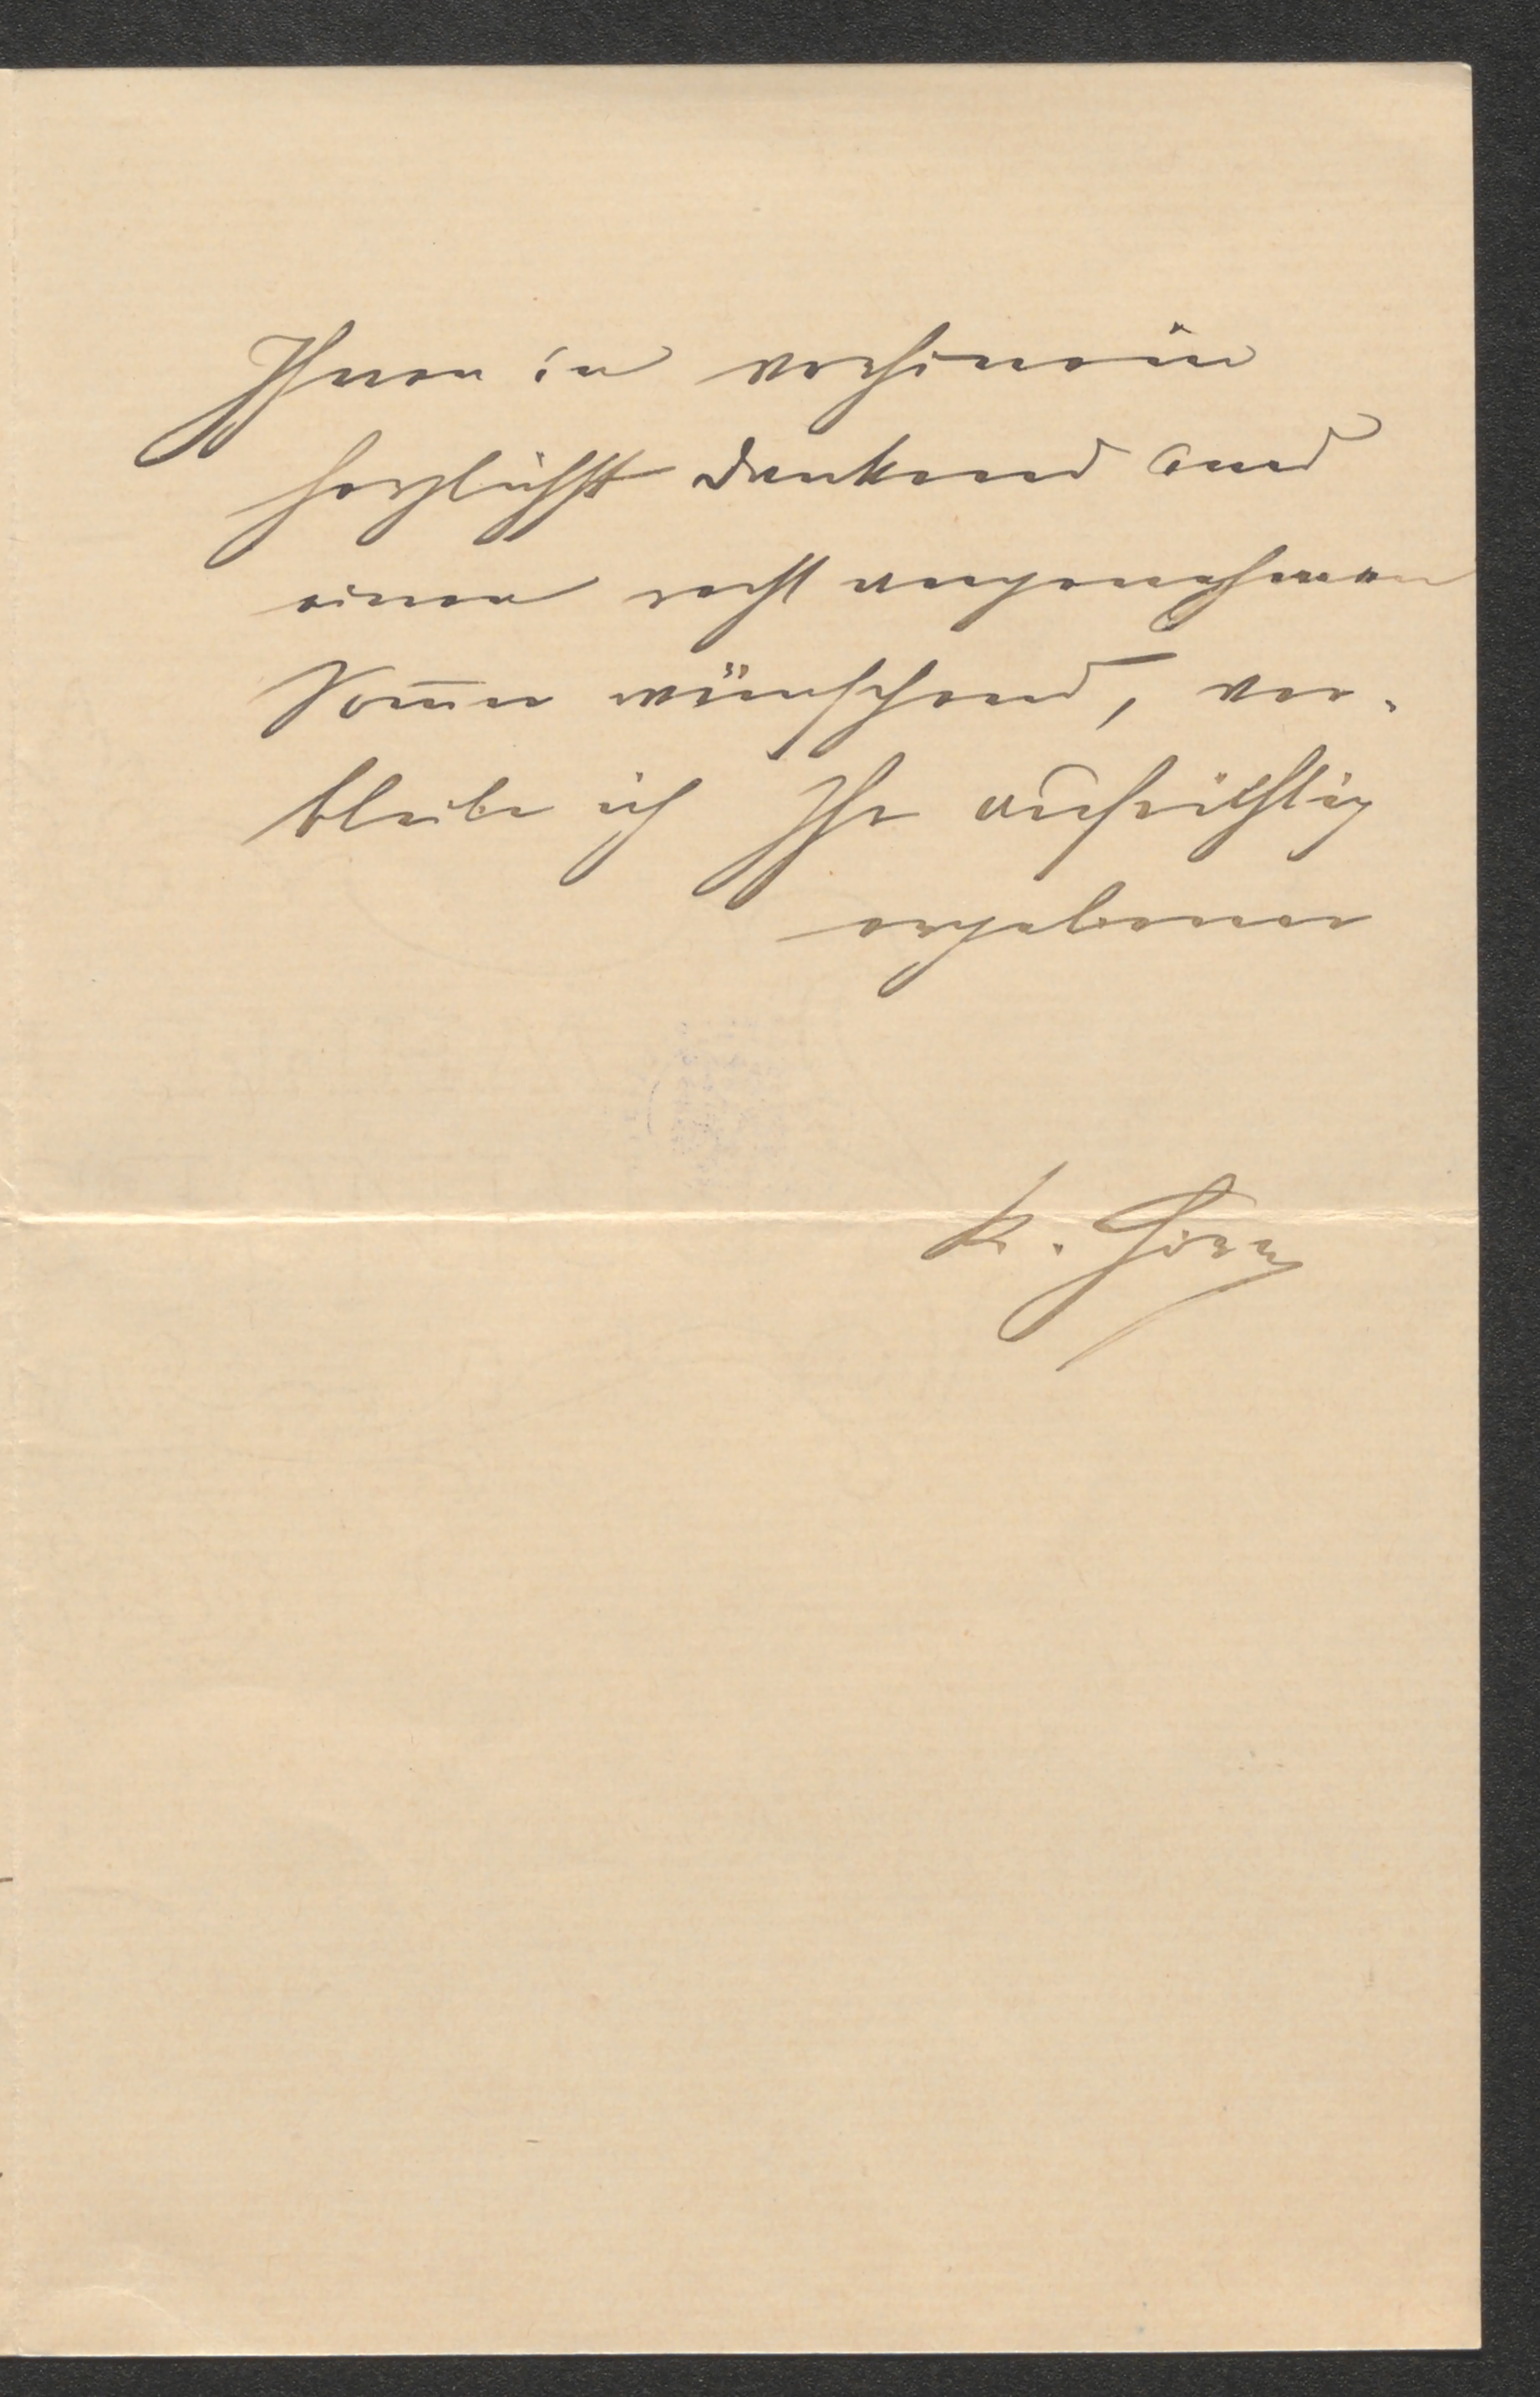 Ihnen im vorhinein
herzlichst dankend und
einen recht angenehmen
Som̅er wünschend, ver-
bleibe ich Ihr aufrichtig
ergebener
K.